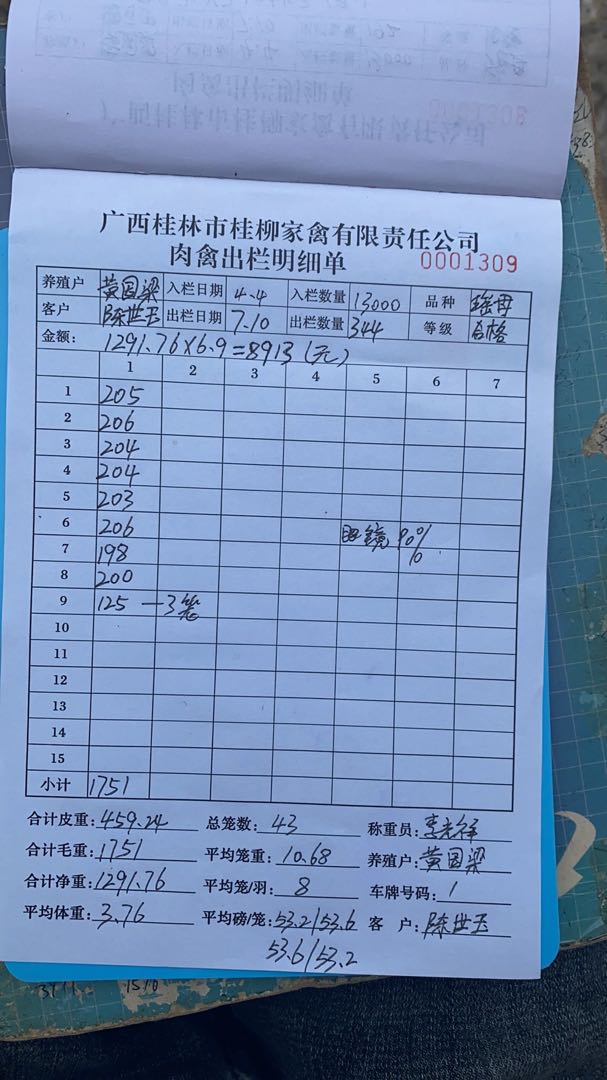 0001308
广西桂林市桂柳家禽有限责任公司
肉禽出栏明细单 0001309
养殖户 黄国梁 入栏日期 4.4 入栏数量 13000 品种 瑶母
客户 陈世玉 出栏日期 7.10 出栏数量 344 等级 合格
金额: 1291.76×6.9=8913(元)
1 2 3 4 5 6 7
1 205
2 206
3 204
4 204
5 203
6 206 眼镜 90%
7 198 %
8 200
9 125 —3笼
10
11
12
13
14
15
小计 1751
合计皮重: 459.24 总笼数: 43 称重员:
合计毛重: 1751 平均笼重: 10.68 养殖户: 黄国梁
合计净重: 1291.76 平均笼/羽: 8 车牌号码: 1
平均体重: 3.76 平均磅/笼: 53.2/53.6 客 户: 陈世玉
53.6/53.2